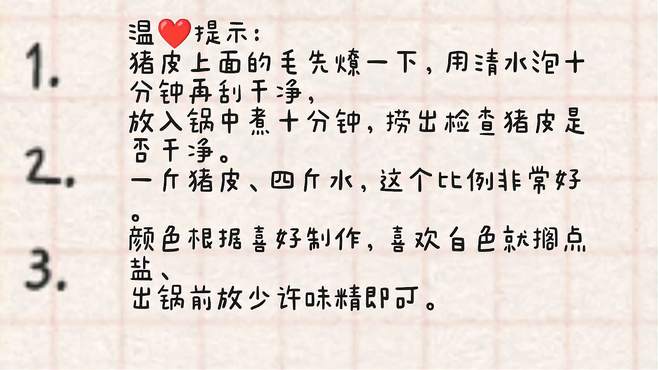 温❤️提示:
1.
猪皮上面的毛先燎一下,用清水泡十
分钟再刮干净,
放入锅中煮十分钟,捞出检查猪皮是
否干净。
2.
一斤猪皮、四斤水,这个比例非常好
。
颜色根据喜好制作,喜欢白色就搁点
3.
盐、
出锅前放少许味精即可。